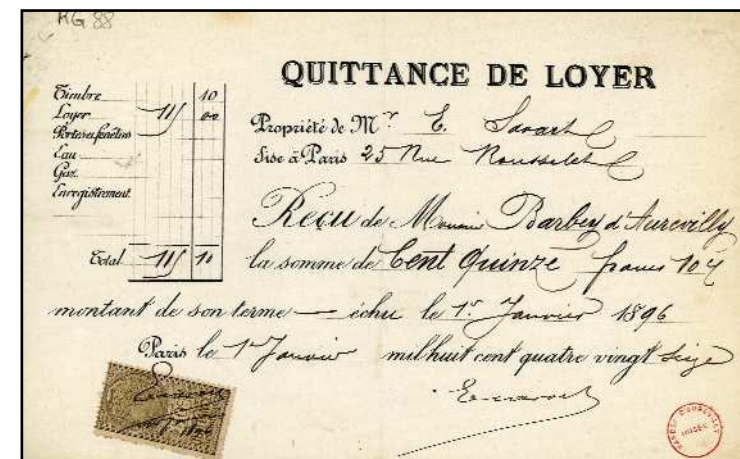 HG 88
QUITTANCE DE LOYER
Timbre 10
Loyer 115 00
Portes et fenêtres
Eau
Gaz
Enregistrement
Total 115 10
Propriété de Mr E. Savart
Sise à Paris 25 Rue Rousselet
Reçu de Monsieur Barbey d'Aurevilly
la somme de Cent Quinze francs 10 c
montant de son terme — échu le 1r Janvier 1896
Paris le 1r Janvier mil huit cent quatre vingt Seize
E. Savart
BARBEY D'AUREVILLY
MUSÉE